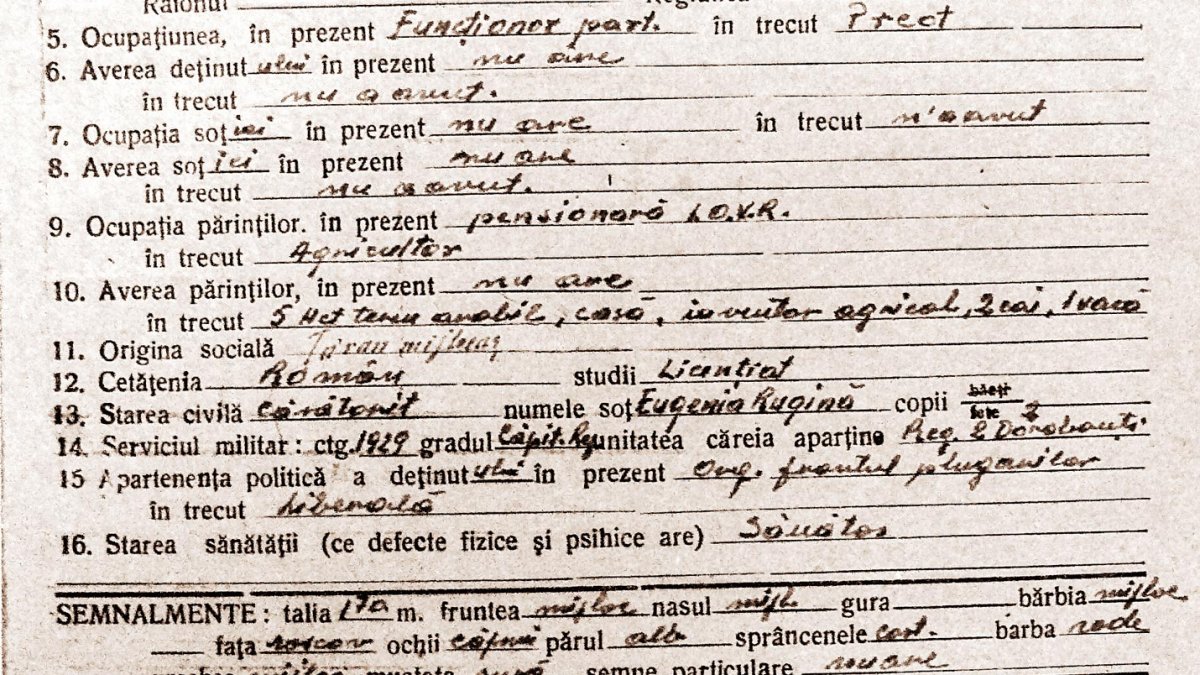 Raionul
5. Ocupațiunea, în prezent Funcționar part. în trecut Preot
6. Averea deținutului în prezent nu are
în trecut nu a avut.
7. Ocupația soției în prezent nu are în trecut n'a avut
8. Averea soției în prezent nu are
în trecut nu a avut.
9. Ocupația părinților. în prezent pensionară I.O.V.R.
în trecut Agricultor
10. Averea părinților, în prezent nu are
în trecut 5 Hct teren arabil, casă, inventar agricol, 2 cai, 1 vacă
11. Origina socială Țăran mijlocaș
12. Cetățenia Român studii Licențiat
13. Starea civilă căsătorit numele soț Eugenia Rugină copii băeți fete 2
14. Serviciul militar: ctg. 1929 gradul Căpit. unitatea căreia aparține Reg. 2 Dorobanți
15 Apartenența politică a deținutului în prezent Org. frontul plugarilor
în trecut Liberală
16. Starea sănătății (ce defecte fizice și psihice are) Sănătos
SEMNALMENTE: talia 170 m. fruntea mijloc nasul mijl. gura bărbia mijloc
fața roșcov ochii căprui părul alb sprâncenele cast. barba rade
semne particulare nu are